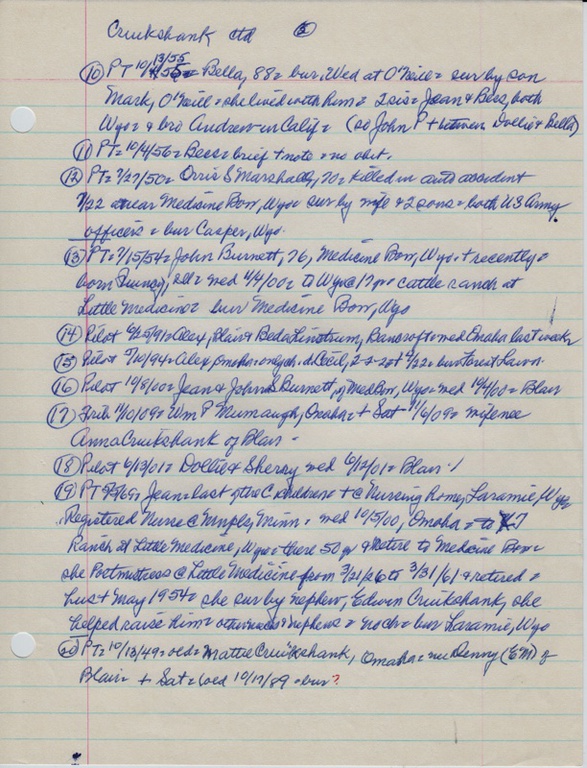 Cruikshank ctd ③
⑩ PT 10/13/55 = Bella, 88 = bur, Wed at O'Neill = sur by son
Mark, O'Neill = she lived with him = 2 sis = Jean & Bess, both
Wyo = & bro Andrew = in Calif = (so John P + between Dollie & Bella)
⑪ PT = 10/4/56 = Bess = brief + note = no obit.
⑫ PT = 7/27/50 = Orris S Marshall, 70 = killed in auto accident
7/22 near Medicine Bow, Wyo = sur by wife & 2 sons = both US Army
officers = bur Casper, Wyo.
⑬ PT = 7/15/54 = John Burnett, 76, Medicine Bow, Wyo. + recently =
born Quincy, Ill = wed 4/4/00 = to Wyo @ 17 yr = cattle ranch at
Little Medicine = bur Medicine Bow, Wyo
⑭ Pilot 6/25/91 = Alex, Blair & Beda Linstrum, Bancroft = wed Omaha last week
⑮ Pilot 7/10/94 = Alex, Omaha = only ch. d. Cecil, 2-2-20 + 6/22 = bur Forest Lawn.
⑯ Pilot 10/8/00 = Jean & John S Burnett, of Med Bow, Wyo = wed 10/4/00 = Blair
⑰ Trib 11/10/09 = Wm P Mumaugh, Omaha = + Sat 11/6/09 = wife nee
Anna Cruikshank of Blair -
⑱ Pilot 6/13/01 = Dollie & Sherry wed 6/12/01 = Blair
⑲ PT = 69 = Jean = last of the C children = + @ Nursing home, Laramie, Wyo
Registered Nurse @ Minn = wed 10/5/00, Omaha = to 7
Ranch at Little Medicine, Wyo = there 50 yr & retire to Medicine Bow =
she Postmistress @ Little Medicine from 3/21/26 to 3/31/61 & retired =
hus + May 1954 = she sur by nephew, Edwin Cruikshank, she
helped raise him = other & nephews = no ch = bur Laramie, Wyo
⑳ PT = 10/13/49 = old = Mattie Cruikshank, Omaha = nee Denny (EM) of
Blair = + Sat = 10/17/89 = bur?